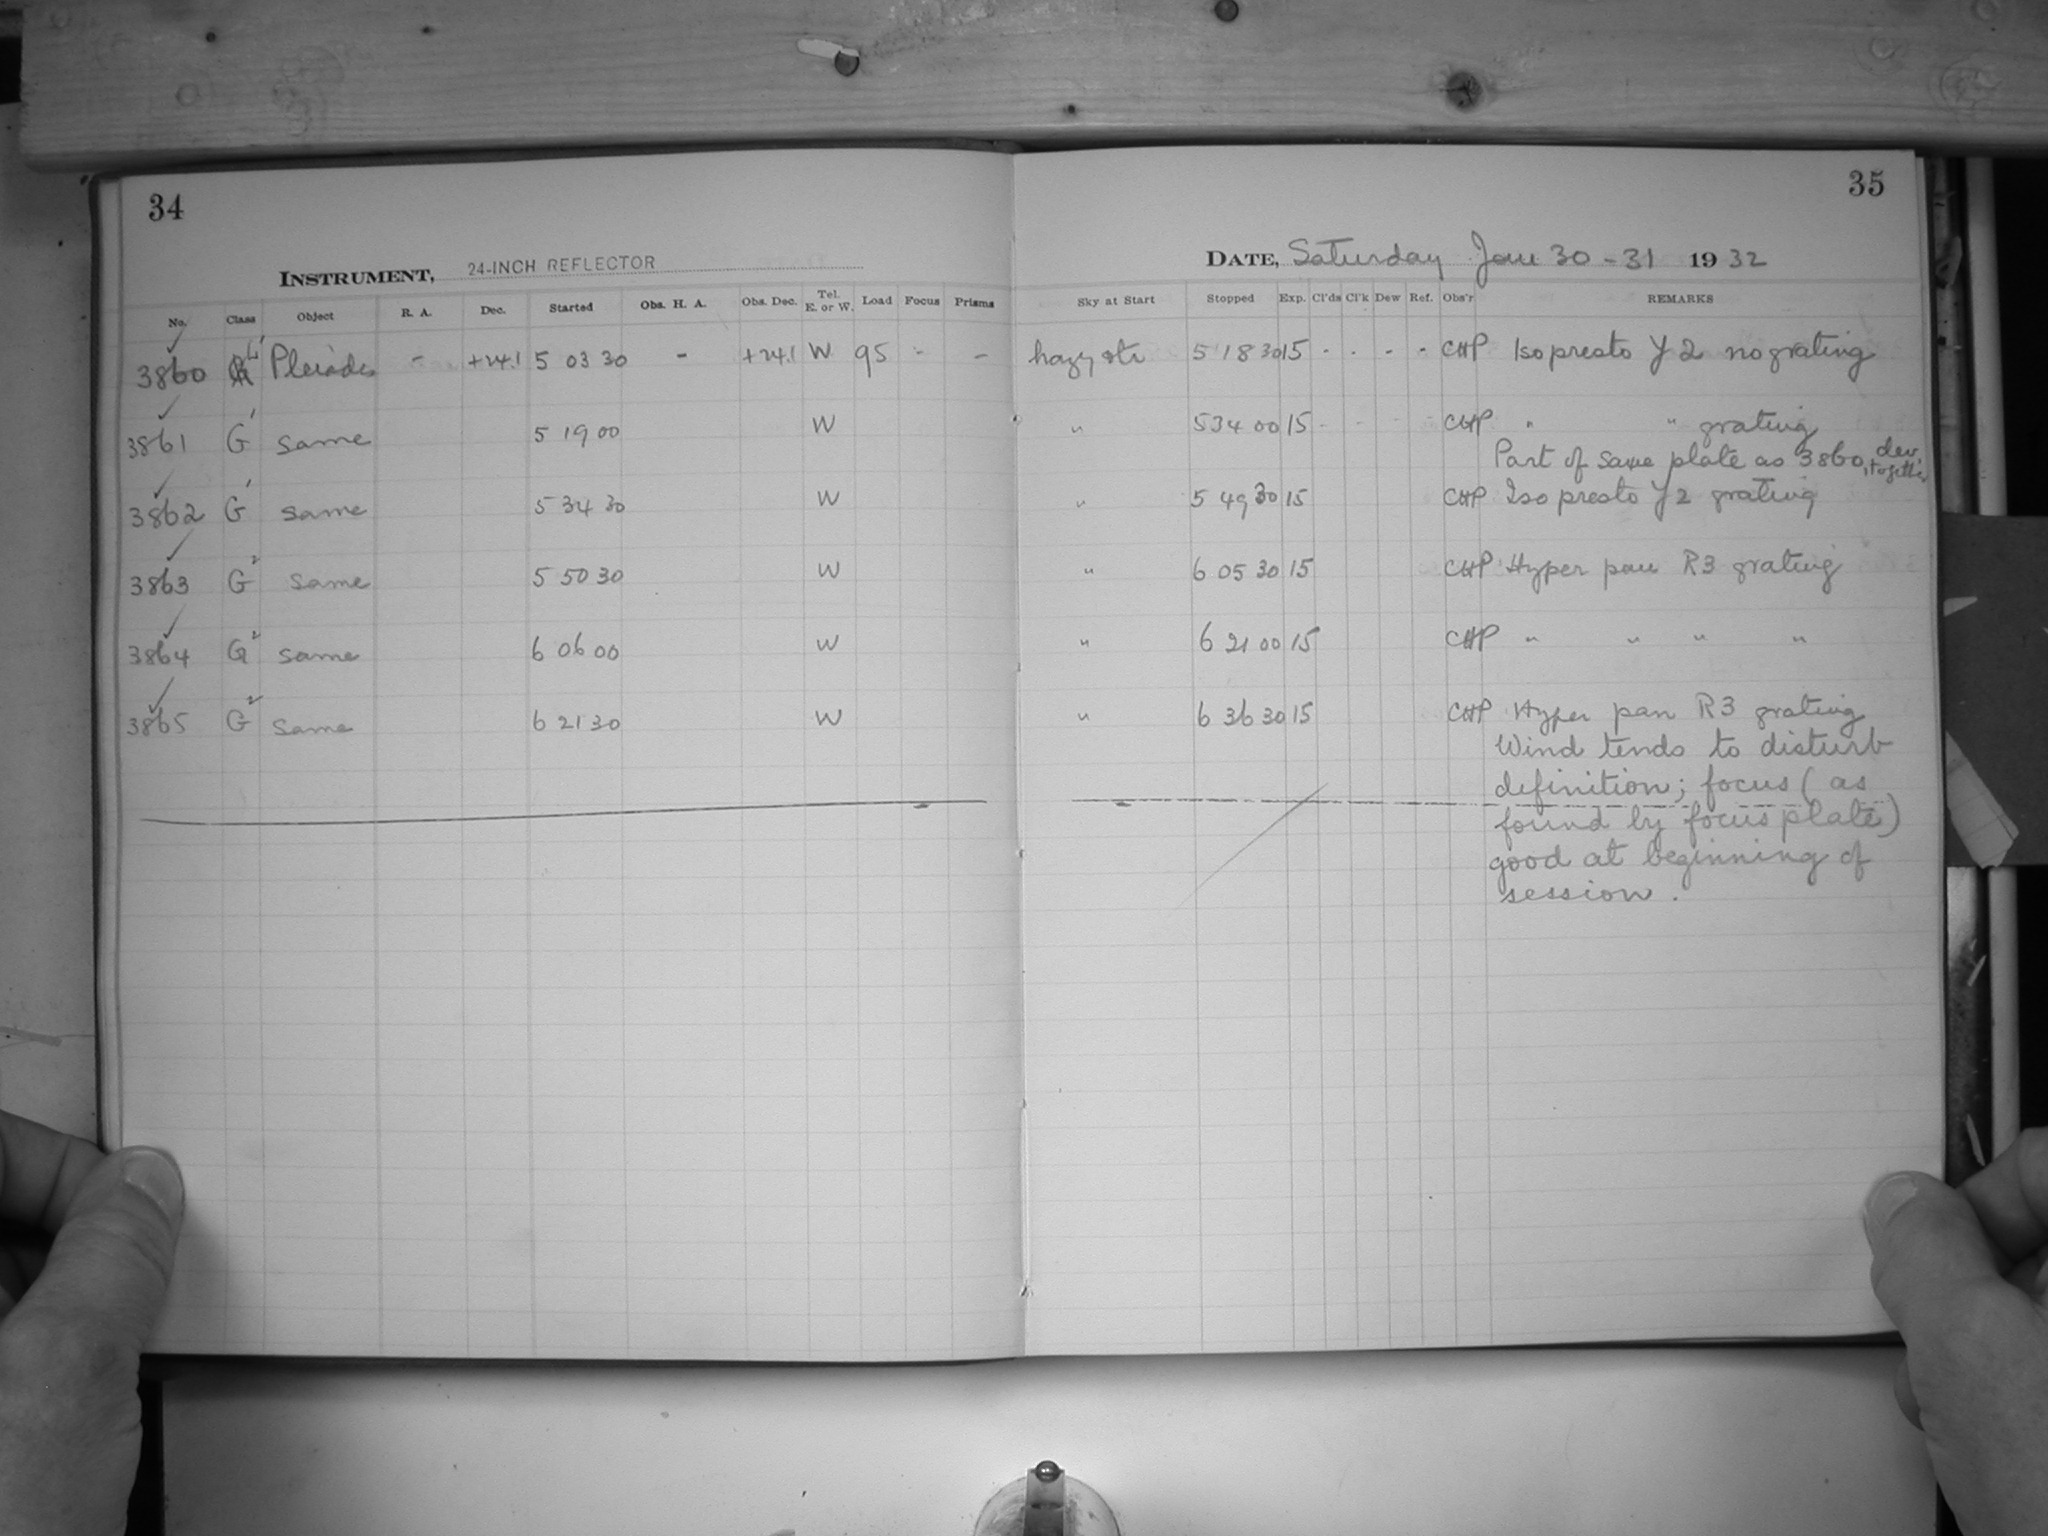 34
INSTRUMENT, 24-INCH REFLECTOR
No. Class Object R. A. Dec. Started Obs. H. A. Obs. Dec. Tel. E. or W. Load Focus Prisms
3860 Pleiades - +24.1 5 03 30 - +24.1 W 95 - -
3861 G' same 5 19 00 W
3862 G' same 5 34 30 W
3863 G² same 5 50 30 W
3864 G² same 6 06 00 W
3865 G² same 6 21 30 W
35
DATE, Saturday Jan 30 - 31 1932
Sky at Start Stopped Exp. Cl'ds Cl'k Dew Ref. Obs'r REMARKS
hazy str 5 18 30 15 - - - - CHP Iso presto Y 2 no grating
" 5 34 00 15 - - - CHP " " grating
Part of same plate as 3860, dev. together
" 5 49 30 15 CHP Iso presto Y 2 grating
" 6 05 30 15 CHP Hyper pan R3 grating
" 6 21 00 15 CHP " " " "
" 6 36 30 15 CHP Hyper pan R3 grating
Wind tends to disturb
definition; focus (as
found by focus plate)
good at beginning of
session.